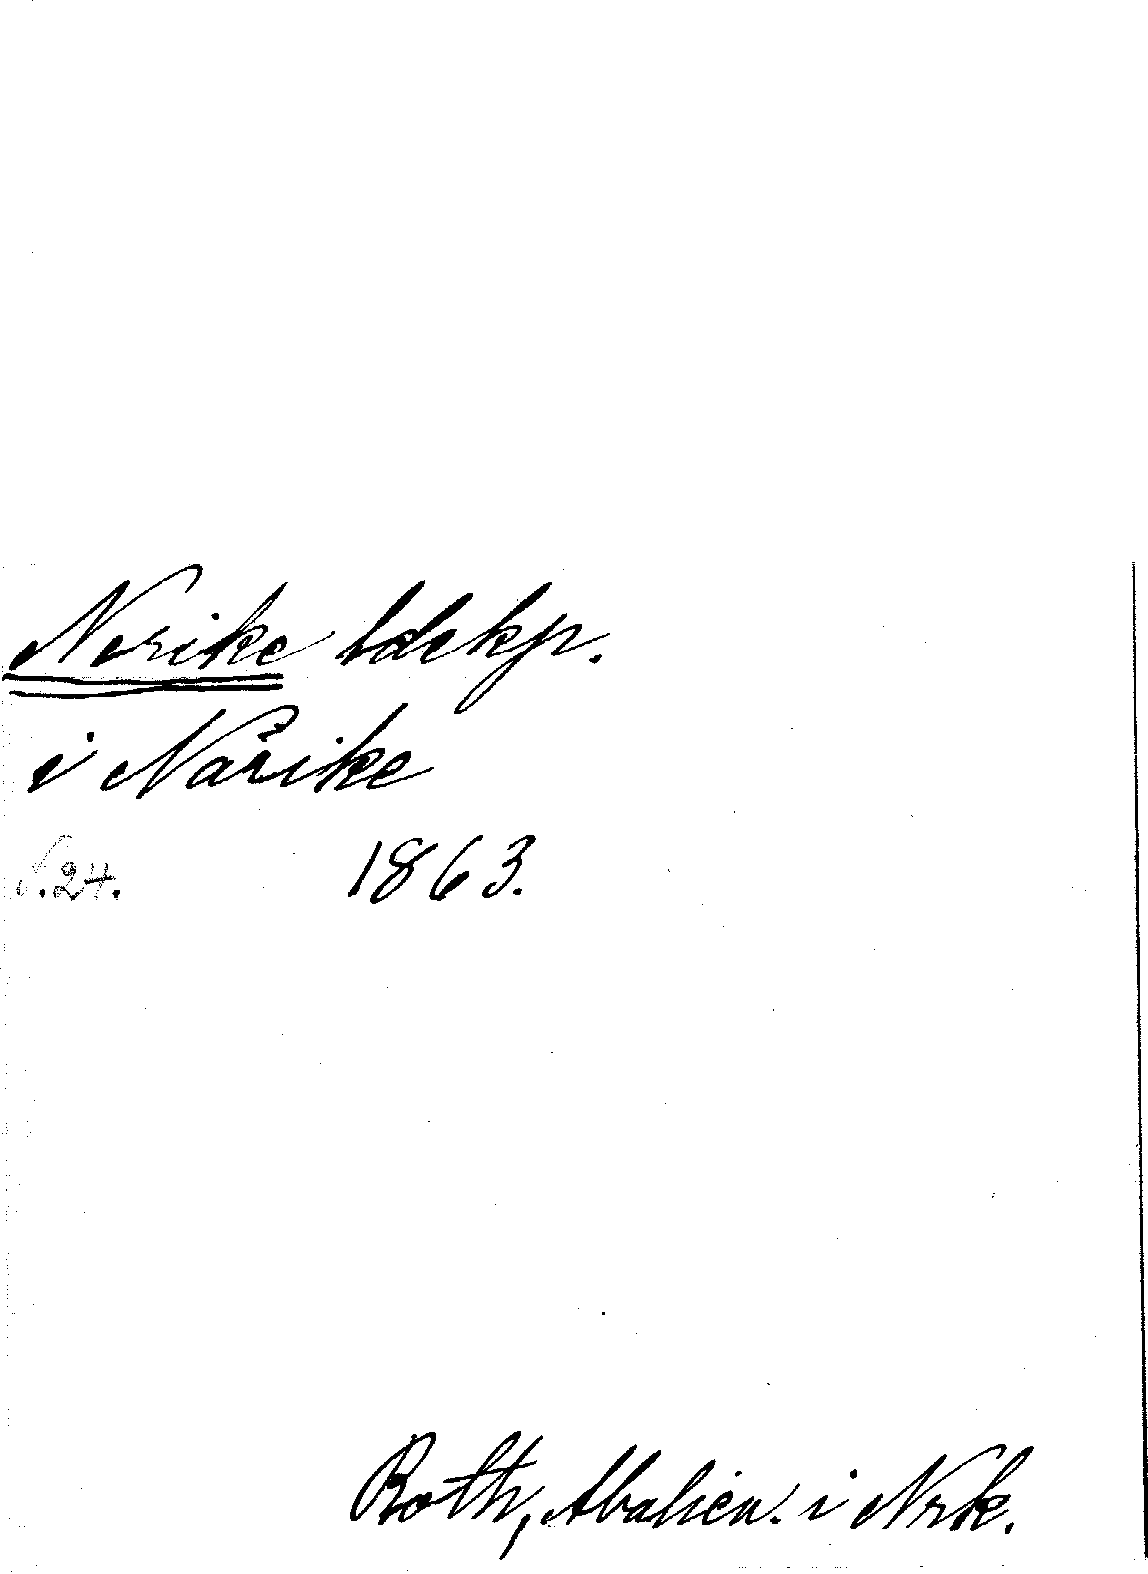 Norike ldskp.
i Närike
S. 24.	1863.
Roth, Abalien. i Nrk.